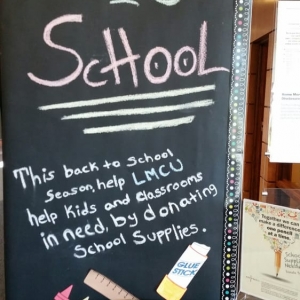 SCHOOL
This back to School
Season, help LMCU
help Kids and classrooms
in need, by donating
School Supplies.
GLUE
STICK
Together we can
make a difference
one pencil
at a time.
School